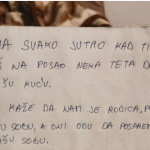 SVAKO JUTRO KAD TI
NA POSAO NEKA TETA
KUĆU.
KAŽE DA NAM JE RODICA,
SOBU, A ONI ODU DA POSPREME
SOBU.